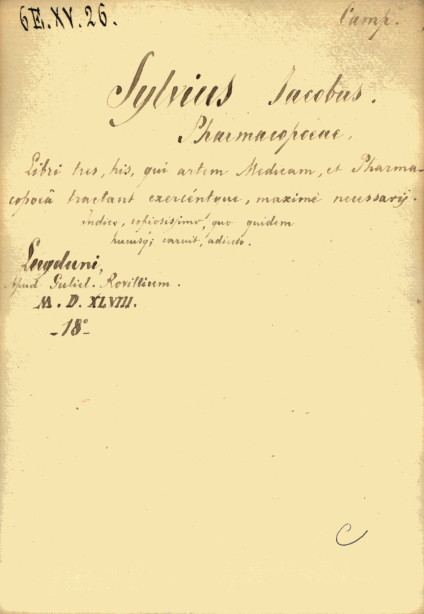 6E.XV.26.
Camp.
Sylvius Jacobus.
Pharmacopoeae.
Libri tres, his, qui artem Medicam, et Pharma-
copoeâ tractant exercéntque, maximé necessarij.
indice, copiosissimo, quo quidem
hucusq; caruit, adiecto.
Lugduni,
Apud Guliel. Rovillium.
M. D. XLVIII.
- 18° -
C